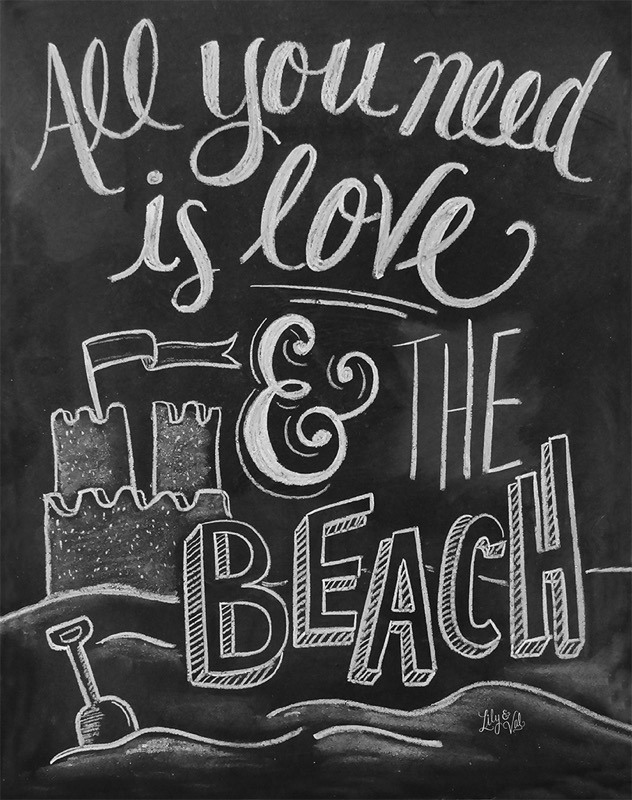 All you need
is love
& THE
BEACH
Lily & Val